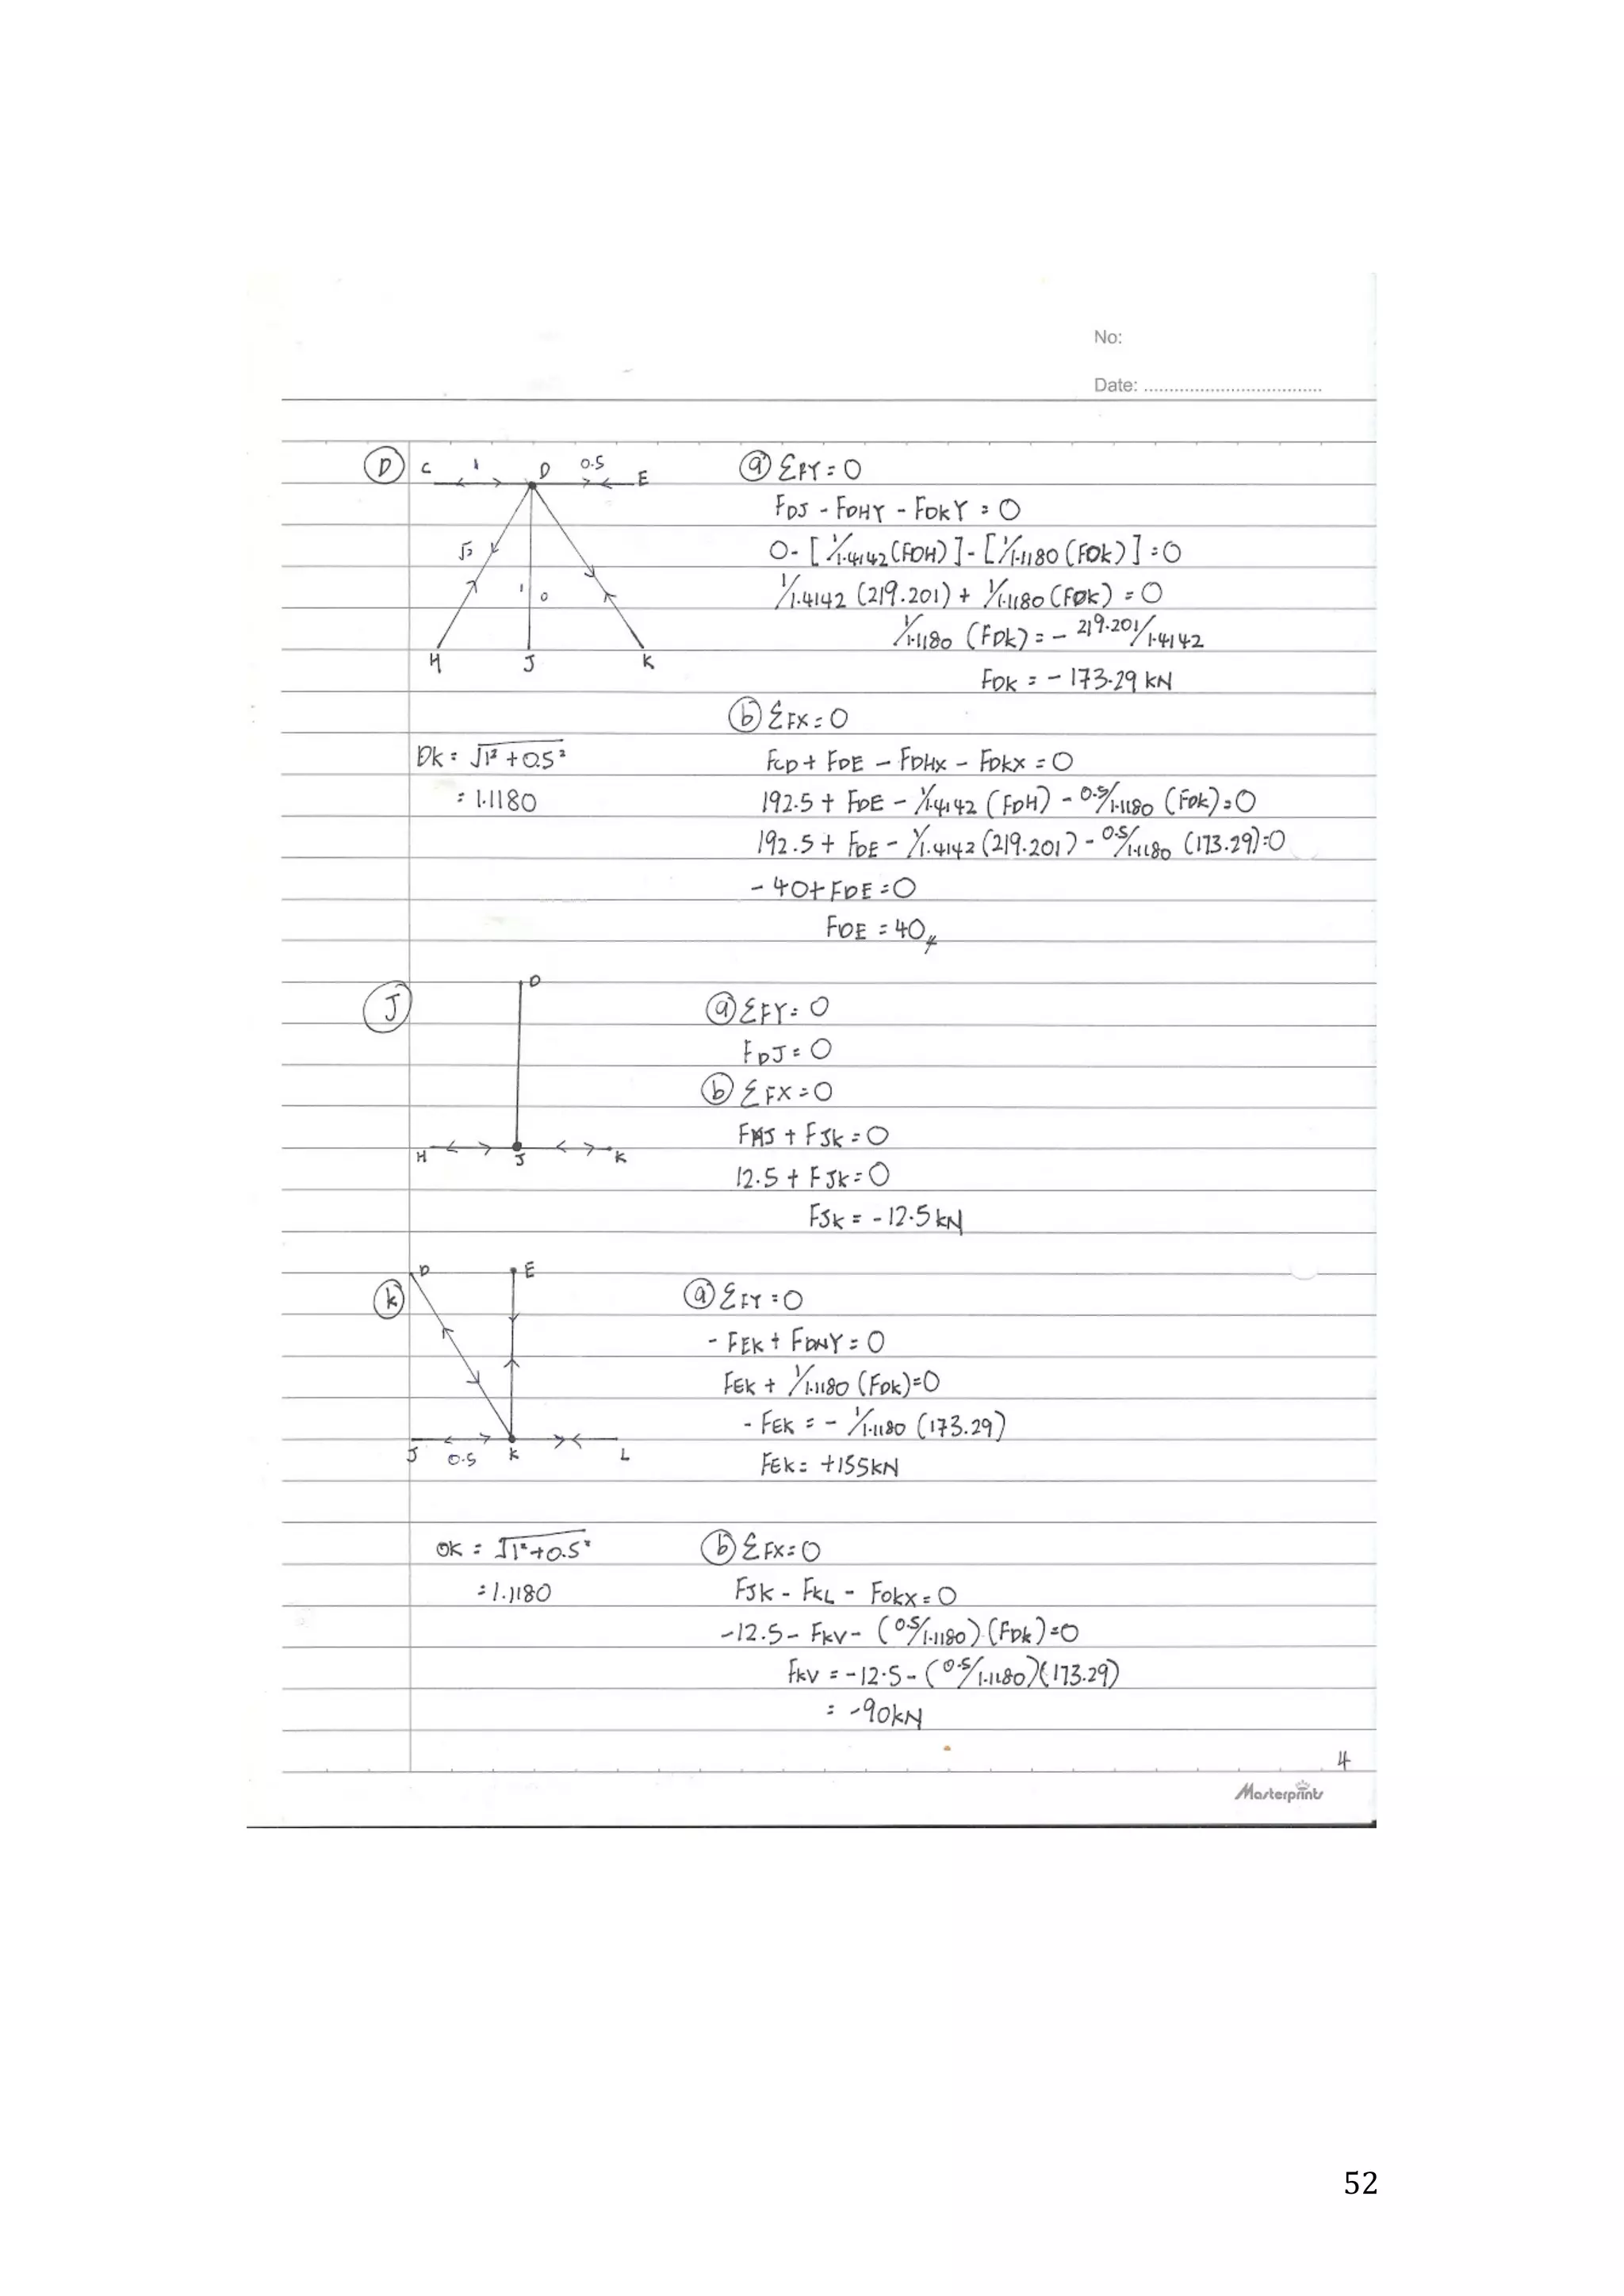 No:
Date: ..................................
D
C 1 D 0.5 E
√2
1 0
H J K
(a) ΣFY = 0
FDJ - FDHY - FDKY = 0
0 - [1/1.4142 (FDH)] - [1/1.1180 (FDK)] = 0
1/1.4142 (219.201) + 1/1.1180 (FDK) = 0
1/1.1180 (FDK) = - 219.201/1.4142
FDK = - 173.29 kN
(b) ΣFX = 0
DK = √1² + 0.5²
FCD + FDE - FDHX - FDKX = 0
= 1.1180
192.5 + FDE - 1/1.4142 (FDH) - 0.5/1.1180 (FDK) = 0
192.5 + FDE - 1/1.4142 (219.201) - 0.5/1.1180 (173.29) = 0
- 40 + FDE = 0
FDE = 40
J
D
H J K
(a) ΣFY = 0
FDJ = 0
(b) ΣFX = 0
FHJ + FJK = 0
12.5 + FJK = 0
FJK = - 12.5 kN
K
D E
J 0.5 K L
(a) ΣFY = 0
- FEK + FDNY = 0
FEK + 1/1.1180 (FDK) = 0
- FEK = - 1/1.1180 (173.29)
FEK = +155kN
DK = √1² + 0.5²
= 1.1180
(b) ΣFX = 0
FJK - FKL - FDKX = 0
-12.5 - FKV - (0.5/1.1180) (FDK) = 0
FKV = -12.5 - (0.5/1.1180)(173.29)
= -90kN
4
Masterprints
52